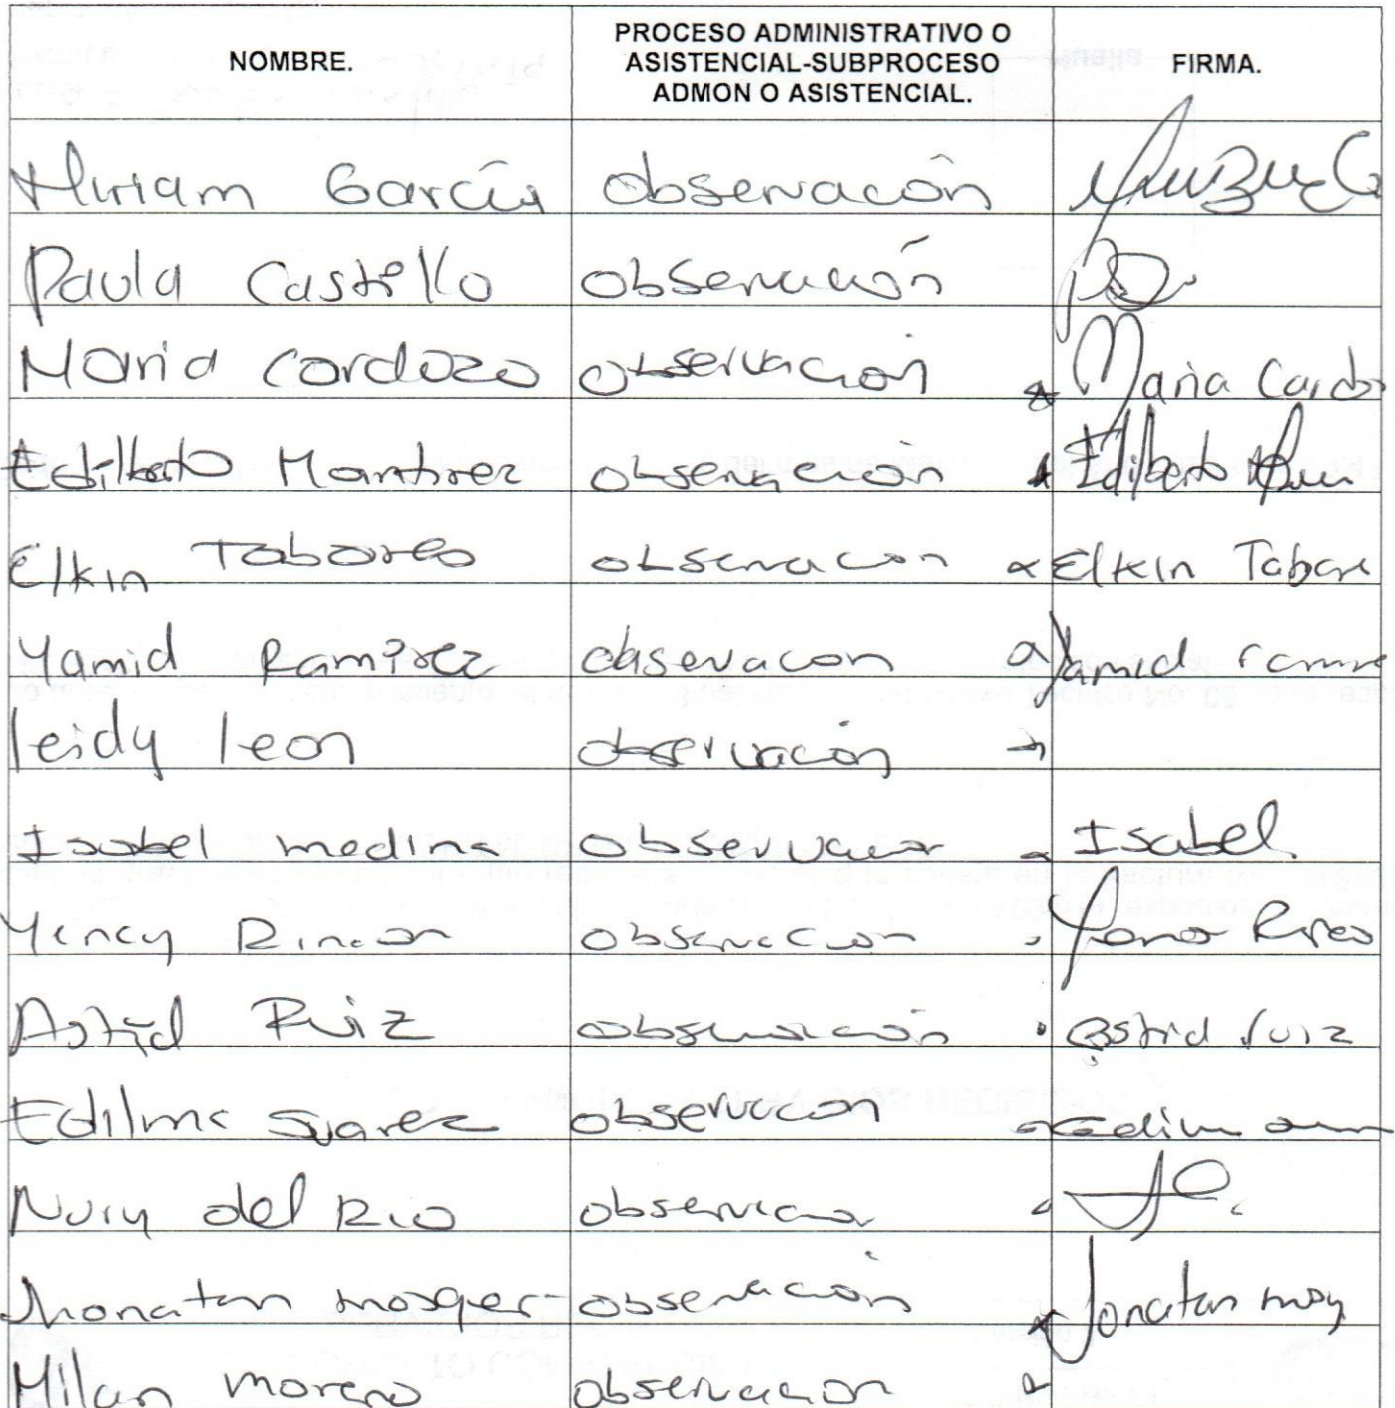 NOMBRE.
PROCESO ADMINISTRATIVO O
ASISTENCIAL-SUBPROCESO
ADMON O ASISTENCIAL.
FIRMA.
Miriam García observación
Paula Castillo observación
Maria Cardozo observación Maria Cardo
Edilberto Martinez observación Edilberto
Elkin Tabares observacon Elkin Tabare
Yamid Ramirez obsevacon Yamid
leidy leon observación
Isabel medina observacion Isabel
Yency Rincon observacion
Astrid Ruiz observación astrid ruiz
Edilma Suarez observacion
Nury del Rio observacion
Jhonatan observación Jonatan
Milan moreno observacion